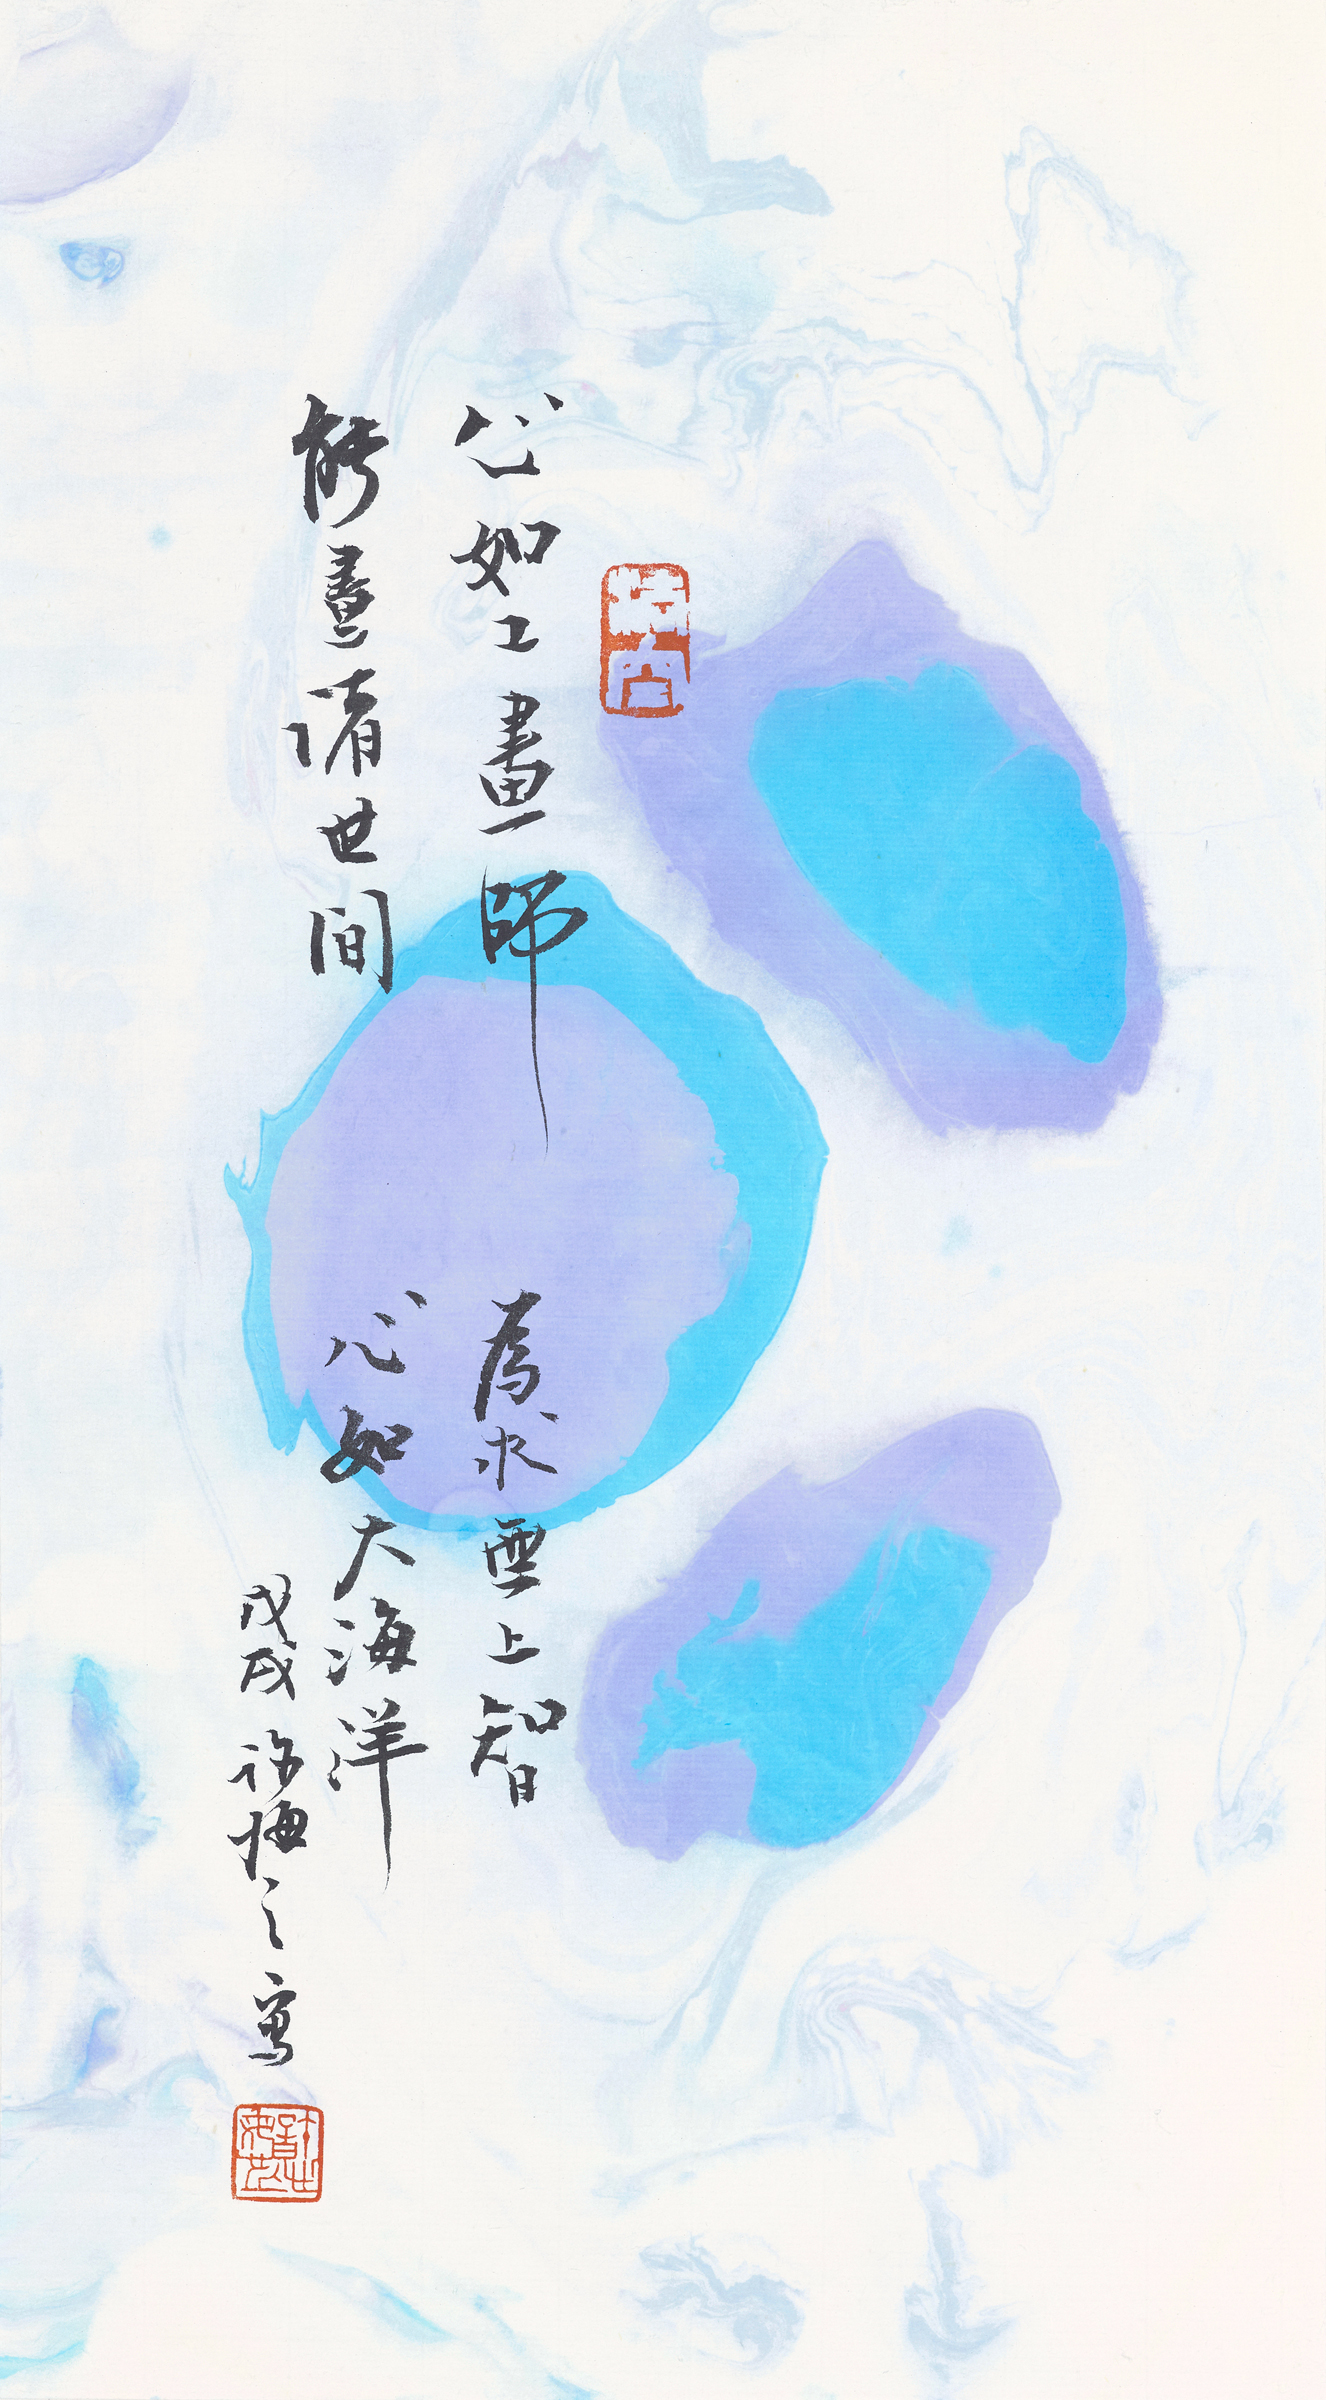 心如工畫師
能畫諸世間
為求無上智
心如大海洋
戊戌 許悔之寫